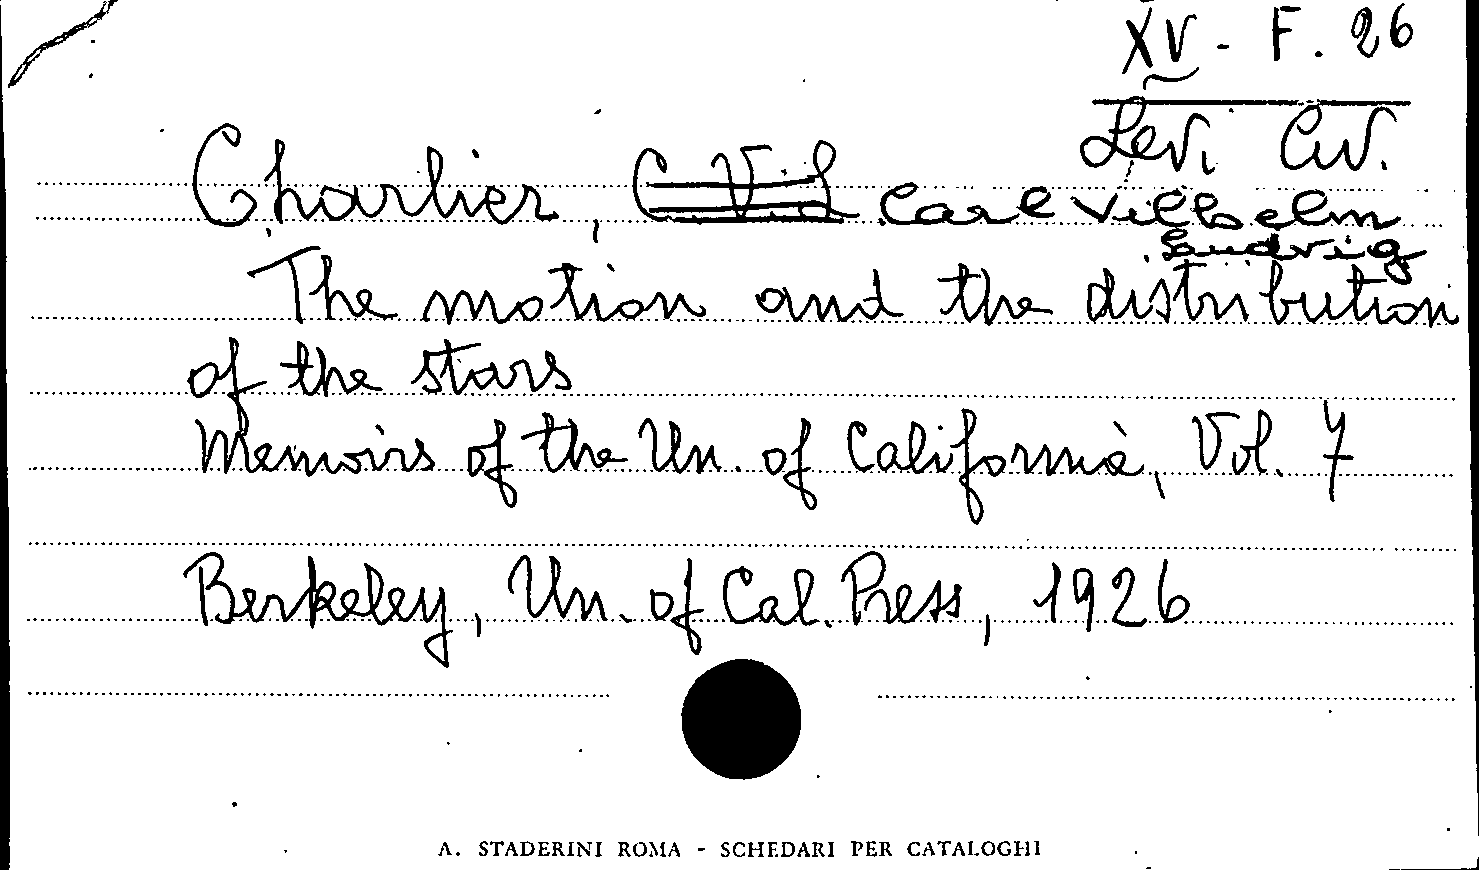 XV - F. 26
Levi Civ.
Charlier, C V. L Carl Vilhelm
Ludvig
The motion and the distribution
of the stars
Memoirs of the Un. of California, Vol. 7
Berkeley, Un. of Cal. Press, 1926
A. STADERINI ROMA - SCHEDARI PER CATALOGHI